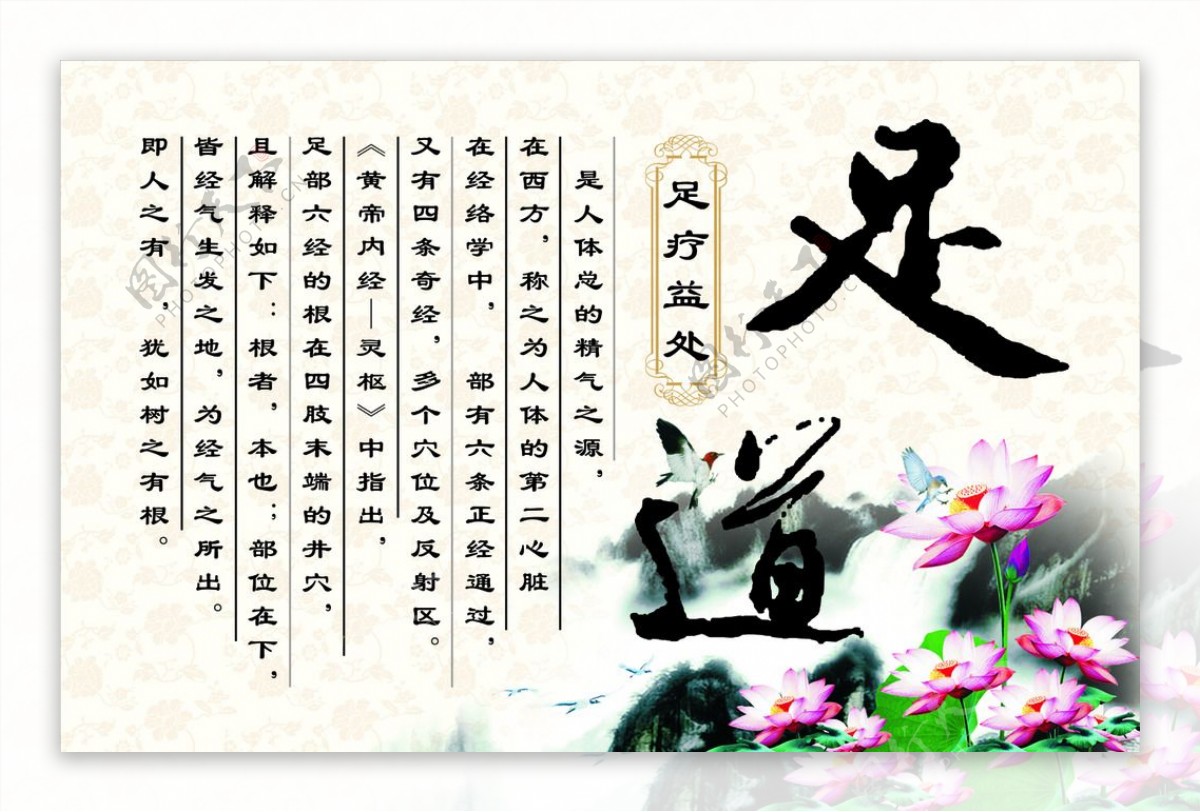 足道
足疗益处
是人体总的精气之源，
在西方，称之为人体的第二心脏
在经络学中， 部有六条正经通过，
又有四条奇经，多个穴位及反射区。
《黄帝内经—灵枢》中指出，
足部六经的根在四肢末端的井穴，
且解释如下：根者，本也；部位在下，
皆经气生发之地，为经气之所出。
即人之有 ，犹如树之有根。